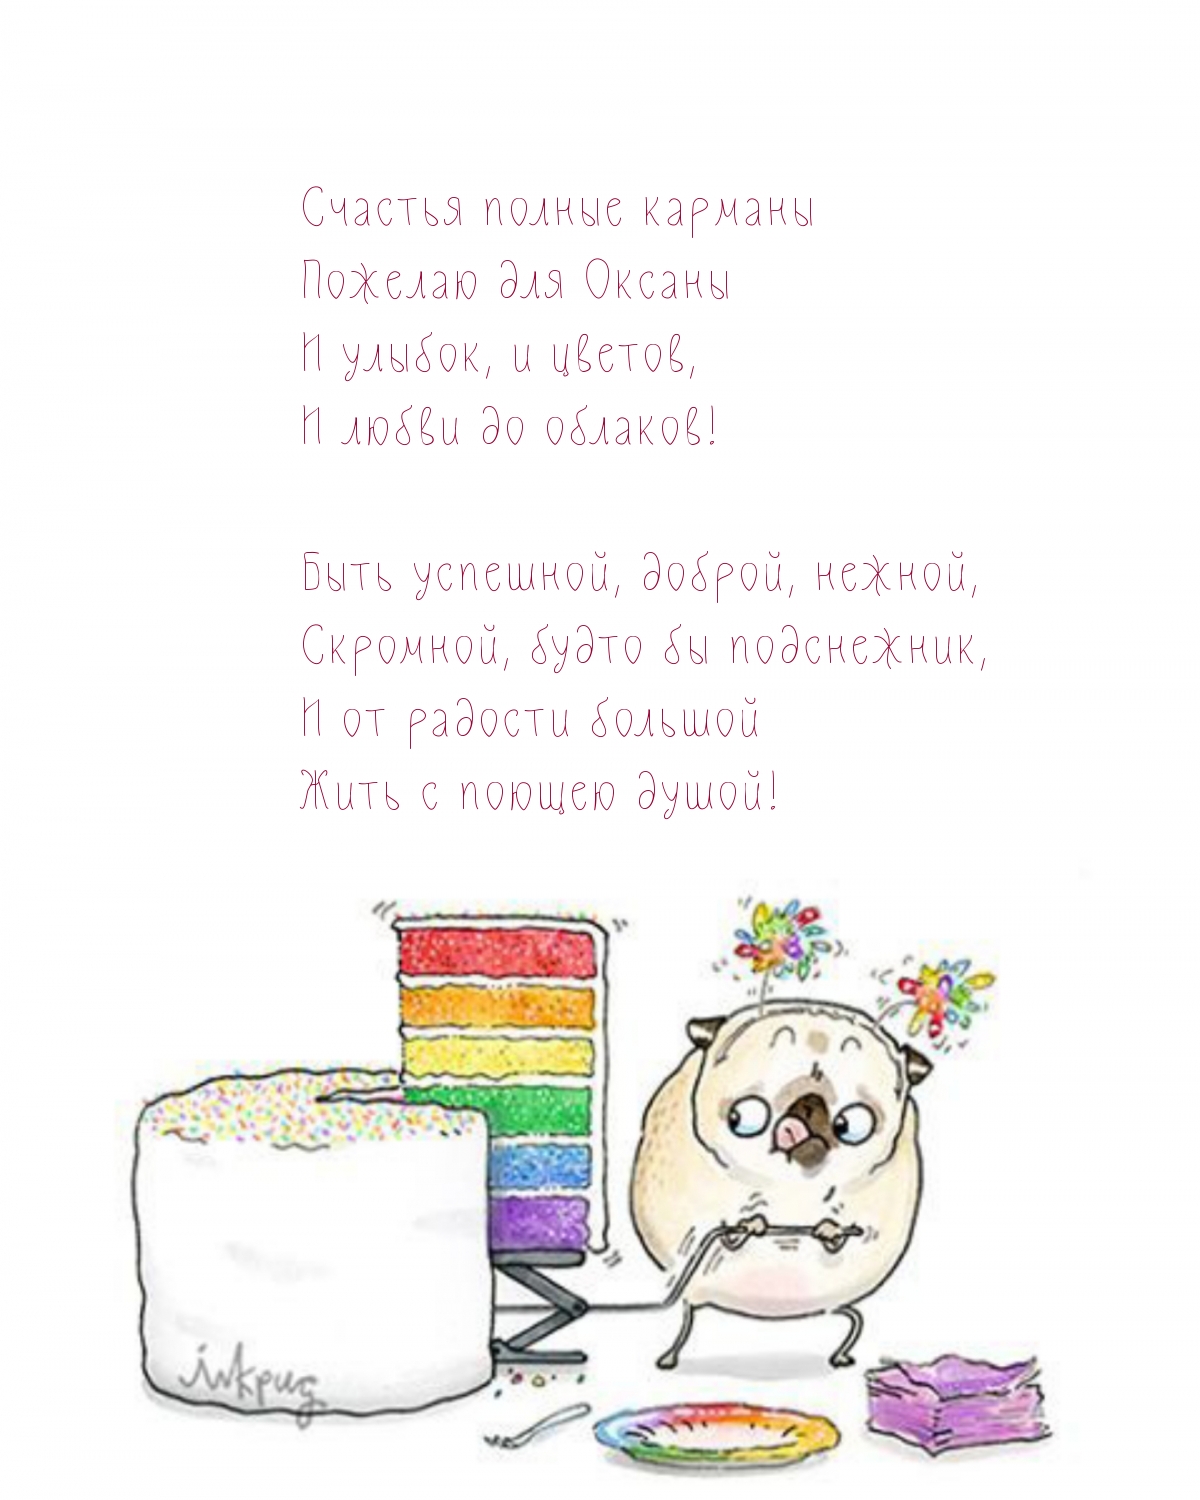 Счастья полные карманы
Пожелаю для Оксаны
И улыбок, и цветов,
И любви до облаков!
Быть успешной, доброй, нежной,
Скромной, будто бы подснежник,
И от радости большой
Жить с поющею душой!
inkpug